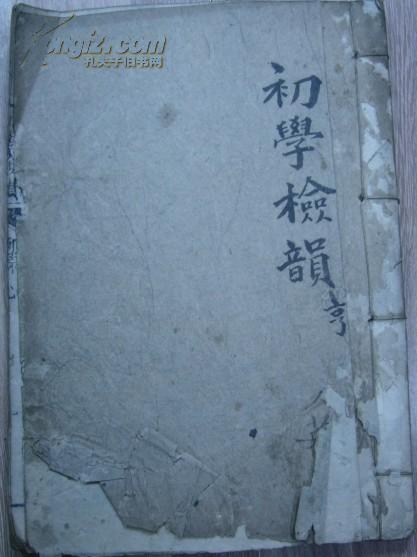 Kongfz.com
孔夫子旧书网
初學檢韻
亨